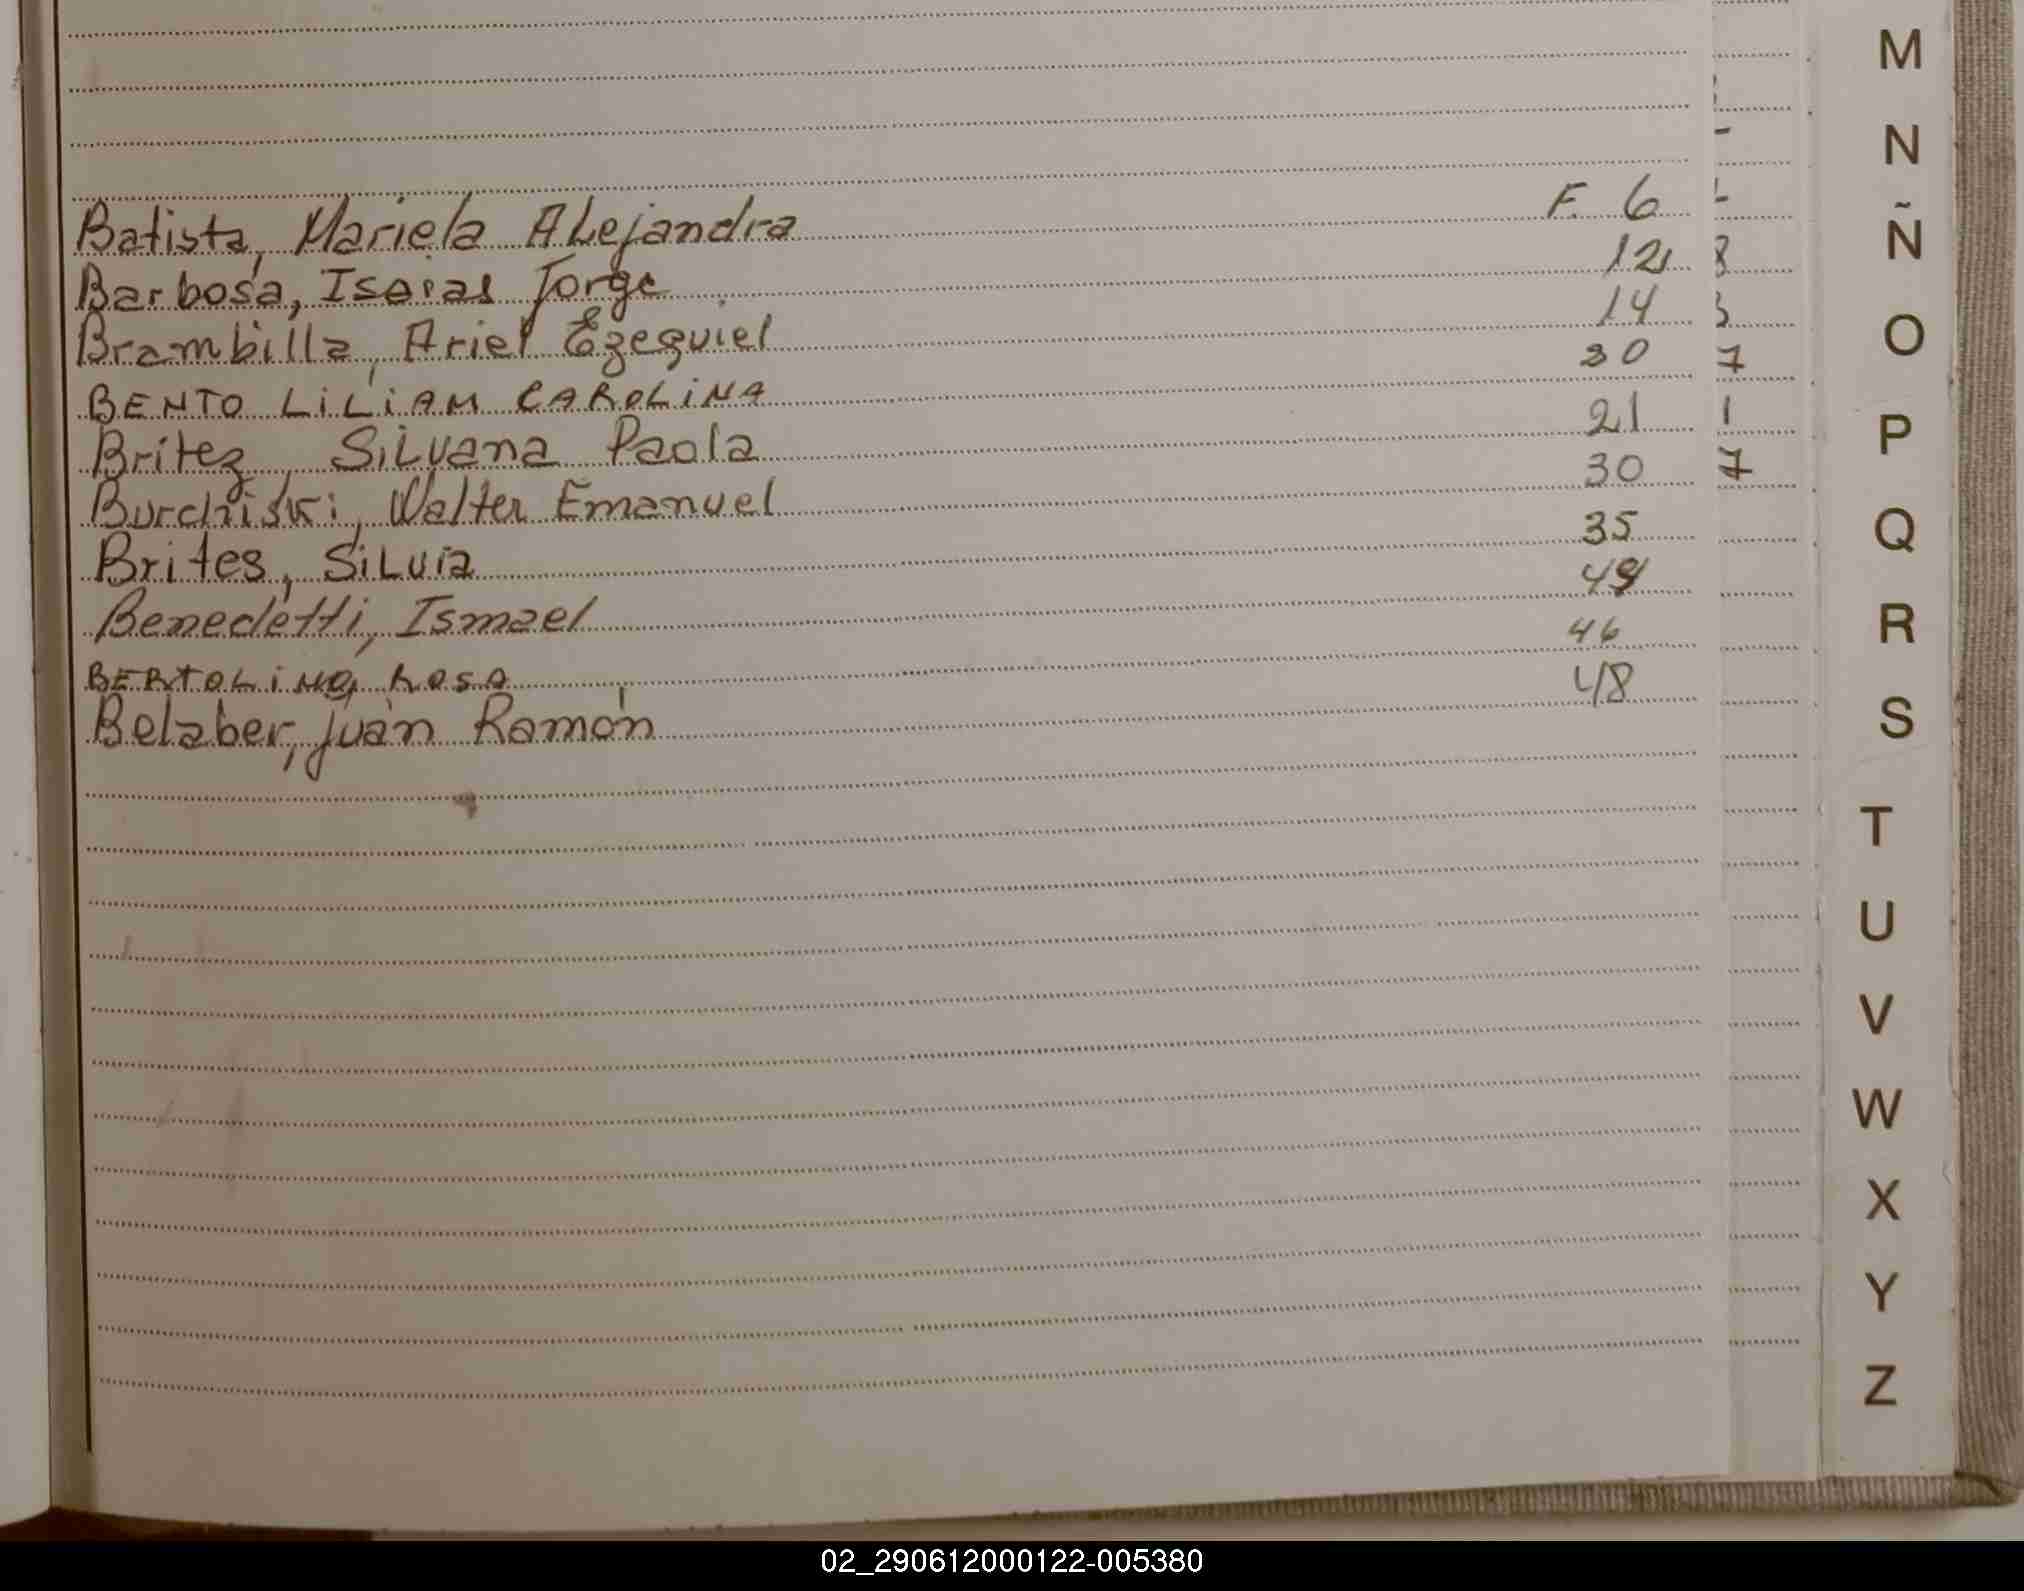 Batista, Mariela Alejandra F. 6
Barbosa, Isaias Jorge 12
Brambilla, Ariel Ezequiel 14
BENTO LILIAM CAROLINA 20
Britez, Silvana Paola 21
Burchiski, Walter Emanuel 30
Brites, Silvia 35
Benedetti, Ismael
BERTOLINO, ROSA 46
Belaber, Juan Ramón 48
7
1
7
M
N
Ñ
O
P
Q
R
S
T
U
V
W
X
Y
Z
02_290612000122-005380